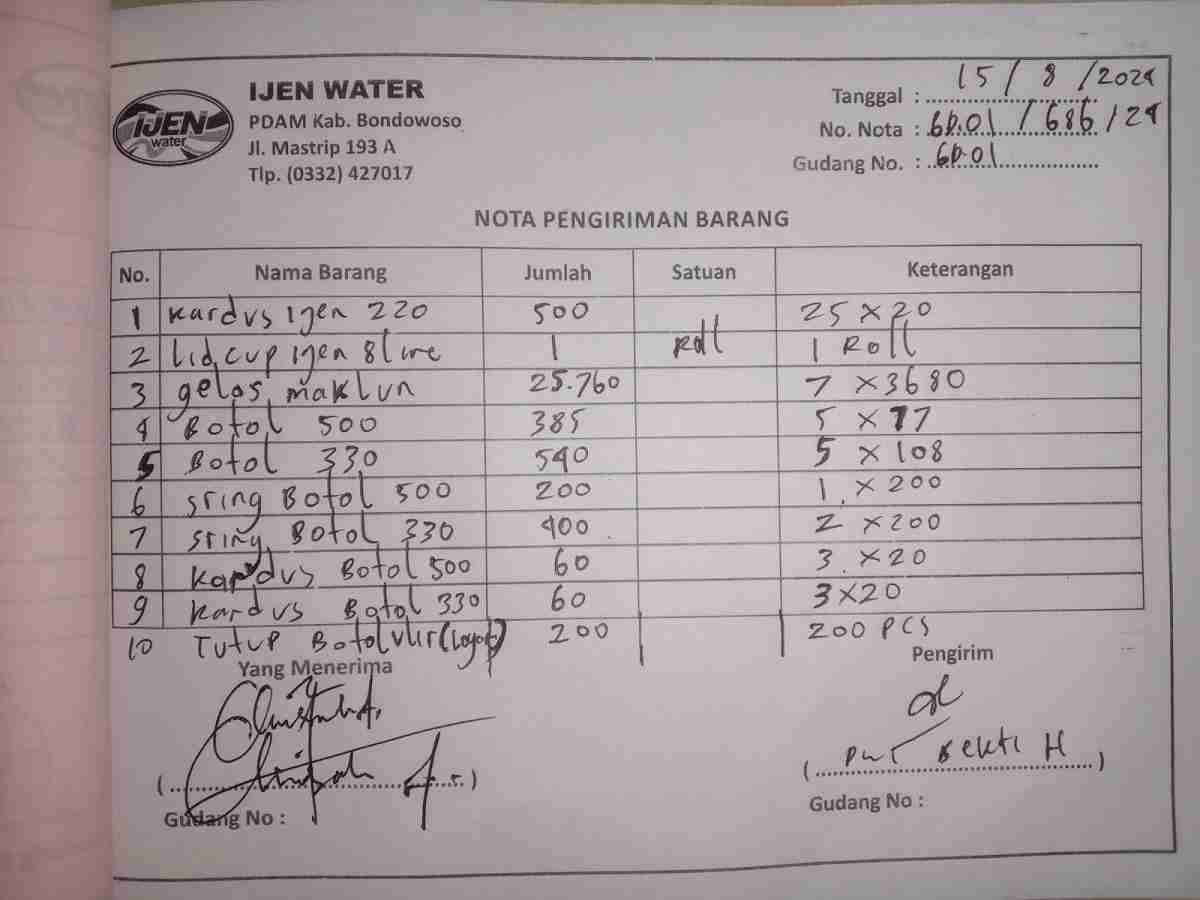 IJEN
water
IJEN WATER
PDAM Kab. Bondowoso
Jl. Mastrip 193 A
Tlp. (0332) 427017
Tanggal : 15 / 8 / 2024
No. Nota : GD.01 / 686 / 24
Gudang No. : GD.01
NOTA PENGIRIMAN BARANG
No. Nama Barang Jumlah Satuan Keterangan
1 Kardus Ijen 220 500 25 x 20
2 Lid cup Ijen 8 line 1 Roll 1 Roll
3 gelas maklun 25.760 7 x 3680
4 Botol 500 385 5 x 77
5 Botol 330 540 5 x 108
6 sring Botol 500 200 1 x 200
7 sring Botol 330 400 2 x 200
8 kardus Botol 500 60 3 x 20
9 kardus Botol 330 60 3 x 20
10 Tutup Botol ulir 200 200 PCS
Yang Menerima Pengirim
Bekti H
Gudang No : Gudang No :